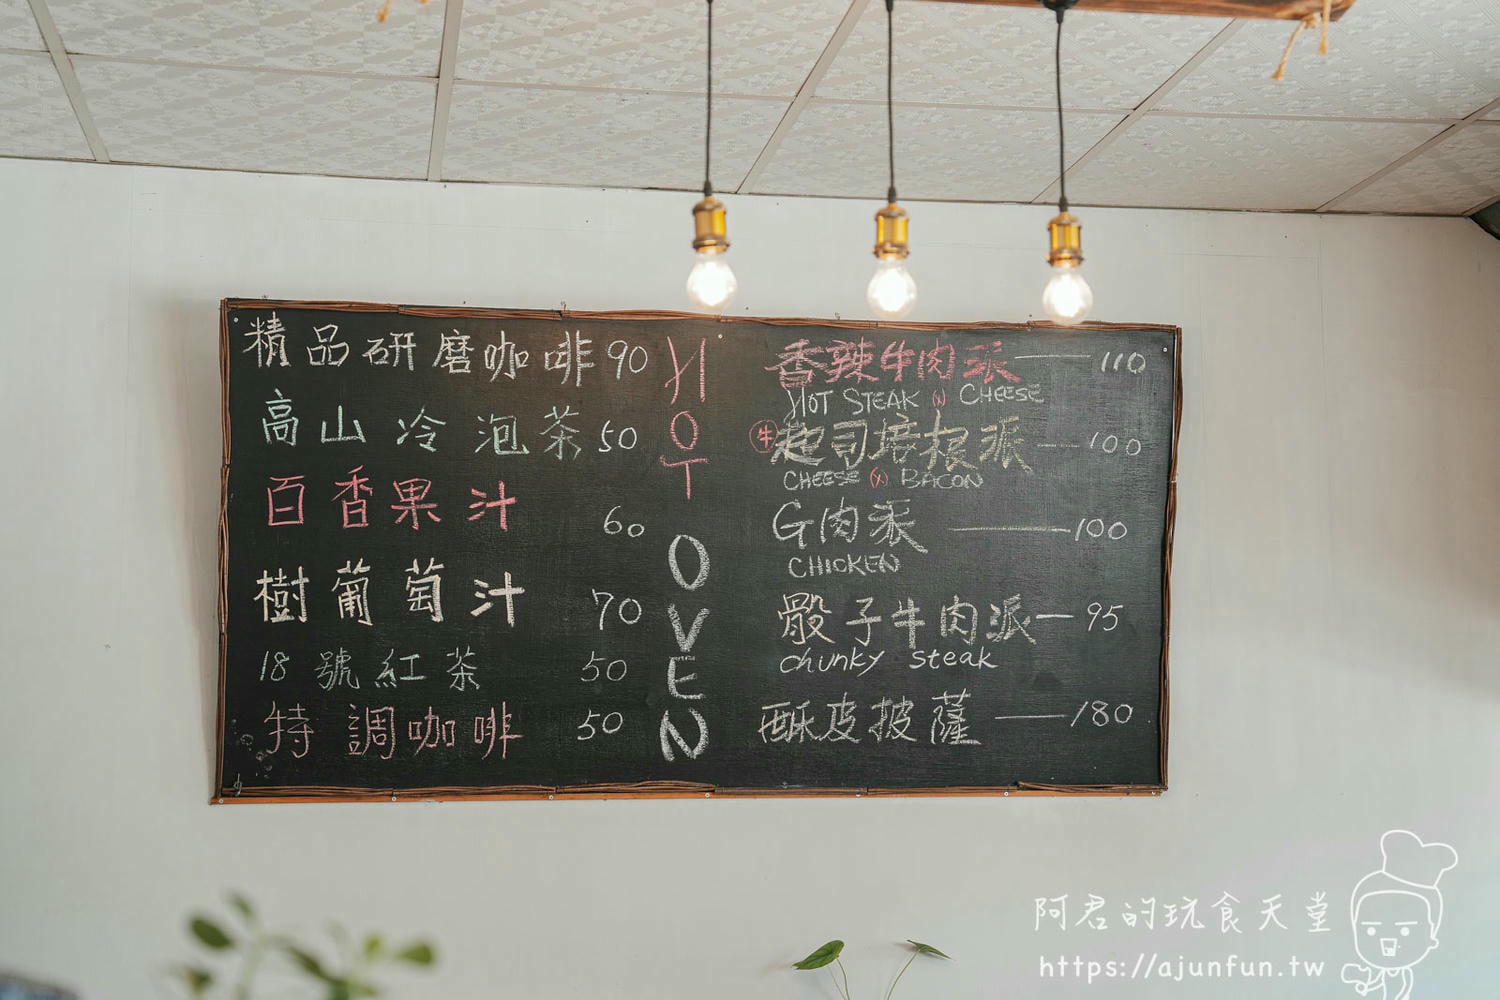 精品研磨咖啡 90
高山冷泡茶 50
百香果汁 60
樹葡萄汁 70
18號紅茶 50
特調咖啡 50
HOT OVEN
香辣牛肉派 — 110
HOT STEAK N CHEESE
牛起司培根派 — 100
CHEESE N BACON
G肉派 — 100
CHICKEN
骰子牛肉派 — 95
chunky steak
酥皮披薩 — 180
阿君的玩食天堂
https://ajunfun.tw